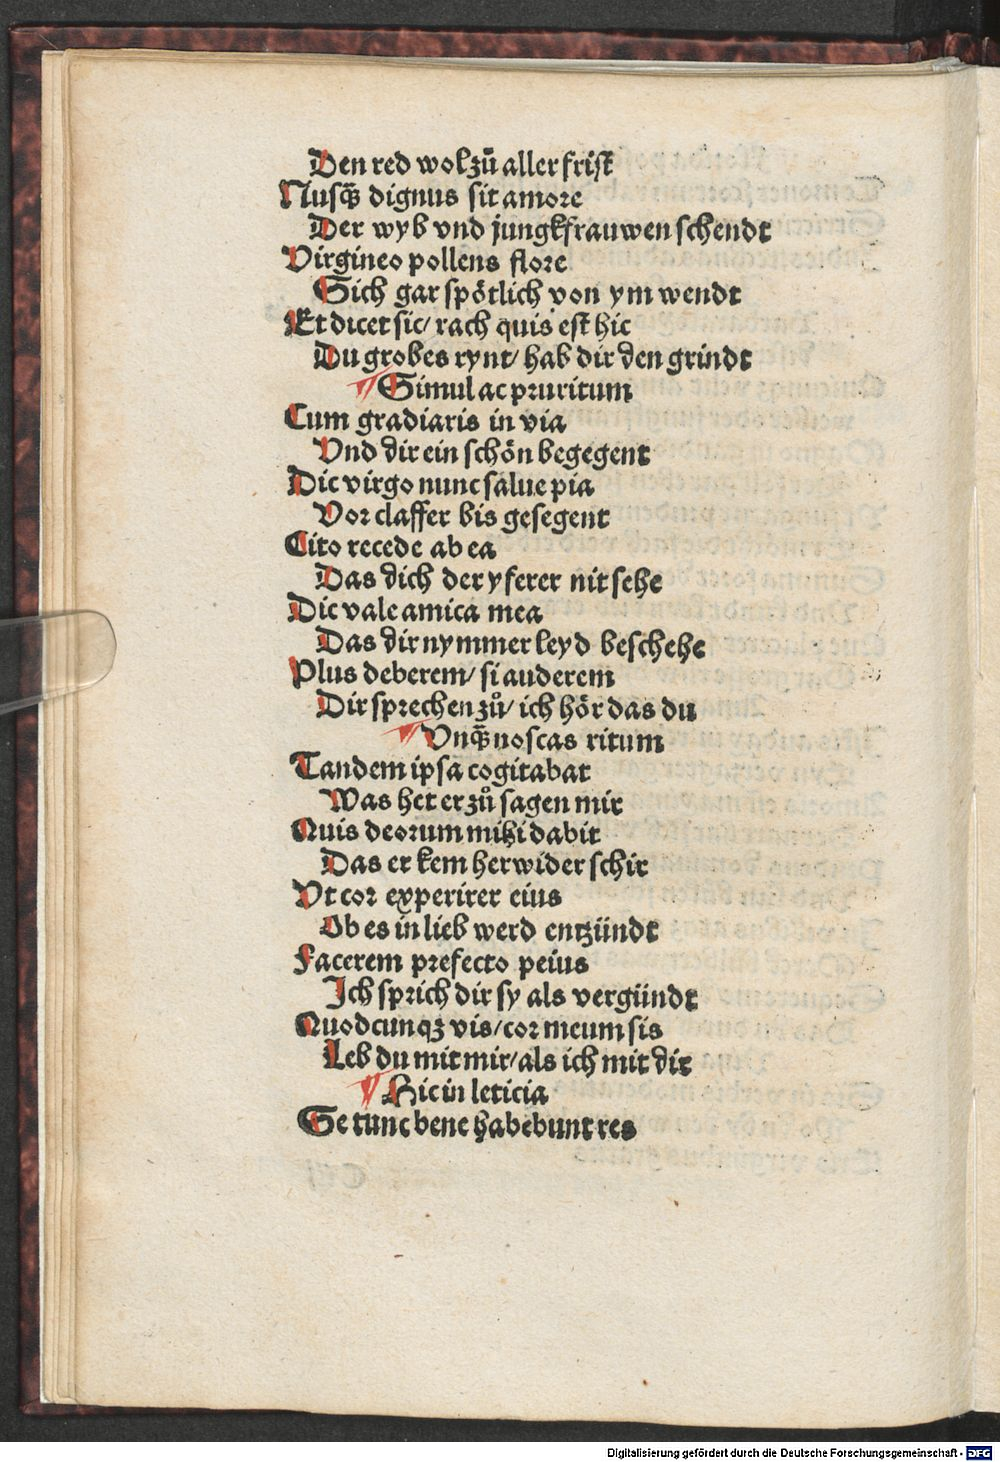 Den red wolzů aller frist
Nusq̃ dignus sit amore
Der wyb vnd jungkfrauwen schendt
Virgineo pollens flore
Sich gar spötlich von ym wendt
Et dicet sic/ rach quis est hic
Du grobes rynt/ hab dir den grindt
Simul ac pruritum
Cum gradiaris in via
Vnd dir ein schön begegent
Dic virgo nunc salue pia
Vor claffer bis gesegent
Cito recede ab ea
Das dich der yferer nit sehe
Dic vale amica mea
Das dir nymmer leyd beschehe
Plus deberem/ si auderem
Dir sprechen zů/ ich hör das du
Vnq̃ noscas ritum
Tandem ipsa cogitabat
Was het er zů sagen mir
Quis deorum mihi dabit
Das er kem herwider schir
Vt cor experirer eius
Ob es in lieb werd entzündt
Facerem prefecto peius
Ich sprich dir sy als vergündt
Quodcunqꝫ vis/ cor meum sis
Leb du mit mir/ als ich mit dir
Hic in leticia
Se tunc bene habebunt res
Digitalisierung gefördert durch die Deutsche Forschungsgemeinschaft - DFG